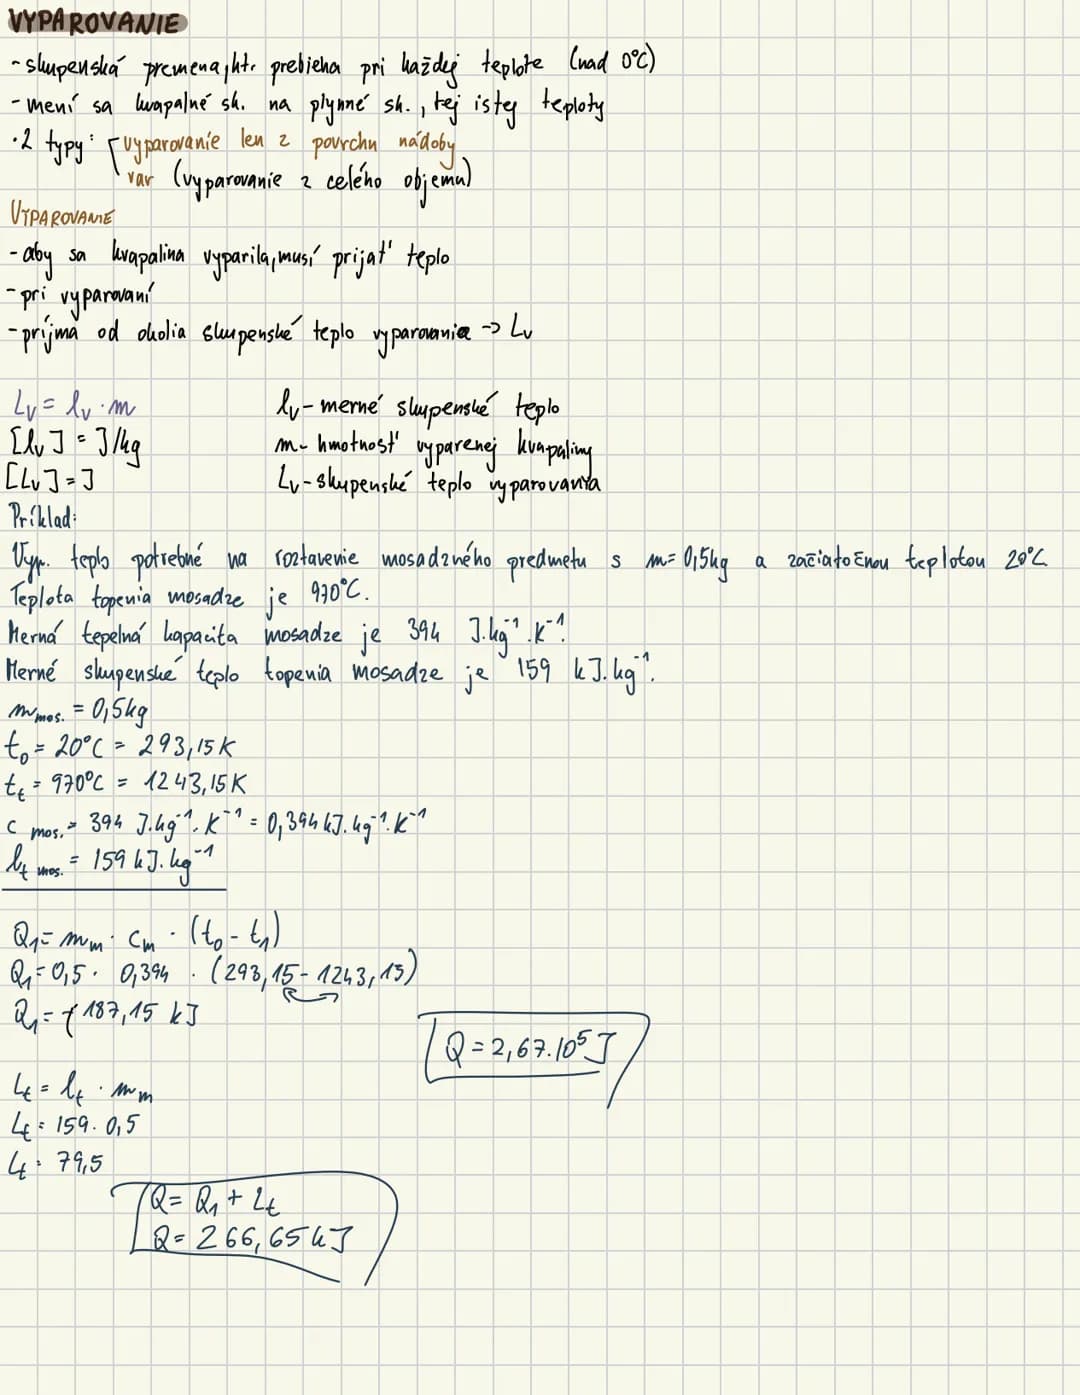 VYPAROVANIE
- skupenská premena, ktr. prebieha pri každej teplote (nad 0°C)
- mení sa kvapalné sk. na plynné sk., tej istej teploty
• 2 typy: vyparovanie len z povrchu nádoby
var (vyparovanie z celého objemu)
VYPAROVANIE
- aby sa kvapalina vyparila, musí prijať teplo
- pri vyparovaní
- príjma od okolia skupenské teplo vyparovania -> Lv
Lv = lv · m
lv - merné skupenské teplo
[lv] = J/kg
m - hmotnosť vyparenej kvapaliny
[Lv] = J
Lv - skupenské teplo vyparovania
Príklad:
Vyp. teplo potrebné na roztavenie mosadzného predmetu s m = 0,5kg a začiatočnou teplotou 20°C
Teplota topenia mosadze je 970°C.
Merná tepelná kapacita mosadze je 394 J.kg⁻¹.K⁻¹.
Merné skupenské teplo topenia mosadze je 159 kJ.kg⁻¹.
m mos. = 0,5kg
t₀ = 20°C = 293,15K
tt = 970°C = 1243,15K
c mos. = 394 J.kg⁻¹.K⁻¹ = 0,394 kJ.kg⁻¹.K⁻¹
lt mos. = 159 kJ.kg⁻¹
Q₁ = mm · cm · (t₀ - t₁)
Q₁ = 0,5 · 0,394 · (293,15 - 1243,15)
Q₁ = 187,15 kJ
Q = 2,67.10⁵ J
Lt = lt · mm
Lt = 159 . 0,5
Lt = 79,5
Q = Q₁ + Lt
Q = 266,65 kJ